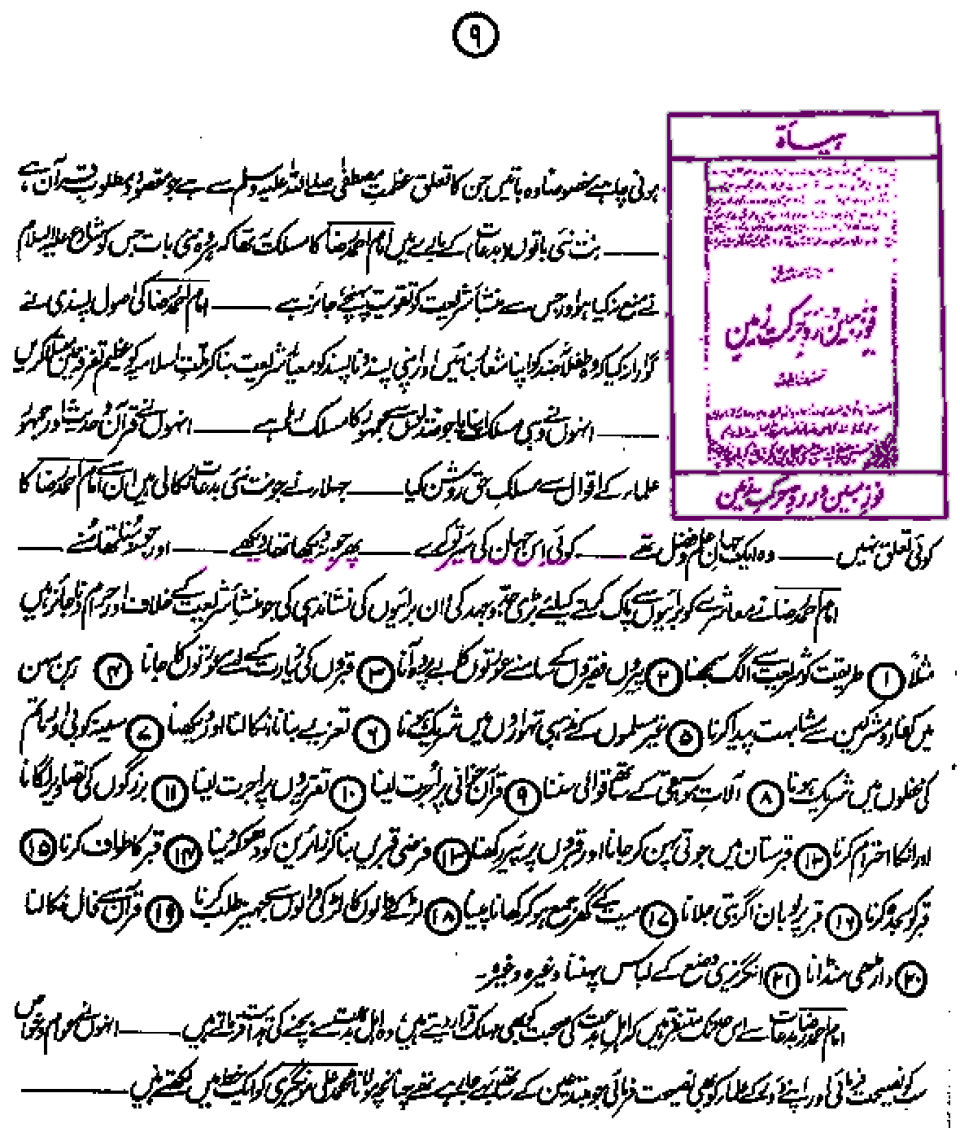 ۹
ہیأۃ
فوزِ مبین در ردِّ حرکتِ زمین
فوزِ مبین در ردِّ حرکتِ زمین
ہونی چاہیے خصوصاً وہ باتیں جن کا تعلق عظمتِ مصطفیٰ صلی اللہ علیہ وسلم سے ہے جو مقصود و مطلوبِ قرآن ہے،
—— نت نئی باتوں (بدعات) کے بارے میں امام احمد رضا کا مسلک تھا کہ ہر وہ نئی بات جس کو شارع علیہ السلام
نے منع نہ کیا ہو اور جس سے منشأ شریعت کو تقویت پہنچے جائز ہے —— امام احمد رضا کی اصول پسندی نے
گوارا نہ کیا کہ وہ طفلانہ ضد کو اپنا شعار بنائیں اور اپنی پسند و ناپسند کو معیارِ شریعت بنا کر ملتِ اسلامیہ کو عظیم تفرقہ میں مبتلا کریں
—— انہوں نے وہی مسلک اپنایا جو صدیوں سے جمہور کا مسلک رہا ہے —— انہوں نے قرآن و حدیث اور جمہور
علماء کے اقوال سے مسلکِ حق روشن کیا —— جہلاء نے جو نت نئی بدعات نکالی ہیں ان سے امام احمد رضا کا
کوئی تعلق نہیں —— وہ ایک جہانِ علم و فضل تھے —— کوئی اس جہان کی سیر تو کرے —— پھر جو نہ دیکھا تھا دیکھے —— اور جو نہ سنا تھا سنے ——
امام احمد رضا نے معاشرے کو برائیوں سے پاک کرنے کیلئے بڑی جدوجہد کی ان برائیوں کی نشاندہی کی جو منشأ شریعت کے خلاف اور حرام و ناجائز ہیں
مثلاً ۱ طریقت کو شریعت سے الگ سمجھنا ۲ پیروں فقیروں کے سامنے عورتوں کا بے پردہ آنا ۳ قبروں کی زیارت کے لئے عورتوں کا جانا ۴ رہن سہن
میں کفار و مشرکین سے مشابہت پیدا کرنا ۵ غیر مسلموں کے مذہبی تہواروں میں شریک ہونا ۶ تعزیے بنانا نکالنا اور دیکھنا ۷ سینہ کوبی و ماتم
کی محفلوں میں شریک ہونا ۸ آلاتِ موسیقی کے ساتھ قوالی سننا ۹ قرآن خوانی پر اُجرت لینا ۱۰ تقریروں پر اجرت لینا ۱۱ بزرگوں کی تصاویر لگانا
اور انکا احترام کرنا ۱۲ قبرستان میں جوتی پہن کر جانا اور قبروں پر پیر رکھنا ۱۳ فرضی قبریں بنا کر زائرین کو دھوکہ دینا ۱۴ قبر کا طواف کرنا ۱۵
قبر کو سجدہ کرنا ۱۶ قبر پر لوبان اگربتی جلانا ۱۷ میت کے گھر جمع ہو کر کھانا پینا ۱۸ لڑکے والوں کا لڑکی والوں سے جہیز طلب کرنا ۱۹ قرآن سے فال نکالنا
۲۰ داڑھی منڈانا ۲۱ انگریزی وضع کے لباس پہننا وغیرہ وغیرہ۔
امام احمد رضا بدعات سے اس حد تک متنفر ہیں کہ اہلِ بدعت کی صحبت کو بھی مہلک قرار دیتے ہیں وہ اہلِ بدعت سے بچنے کی ہدایت فرماتے ہیں —— انہوں نے عوام و خواص
سب کو نصیحت فرمائی اور اپنے دور کے علماء کو بھی نصیحت فرمائی جو مبتدعین کے قریب جا رہے تھے چنانچہ مولانا محمد علی مونگیری کو ایک خط میں لکھتے ہیں ——